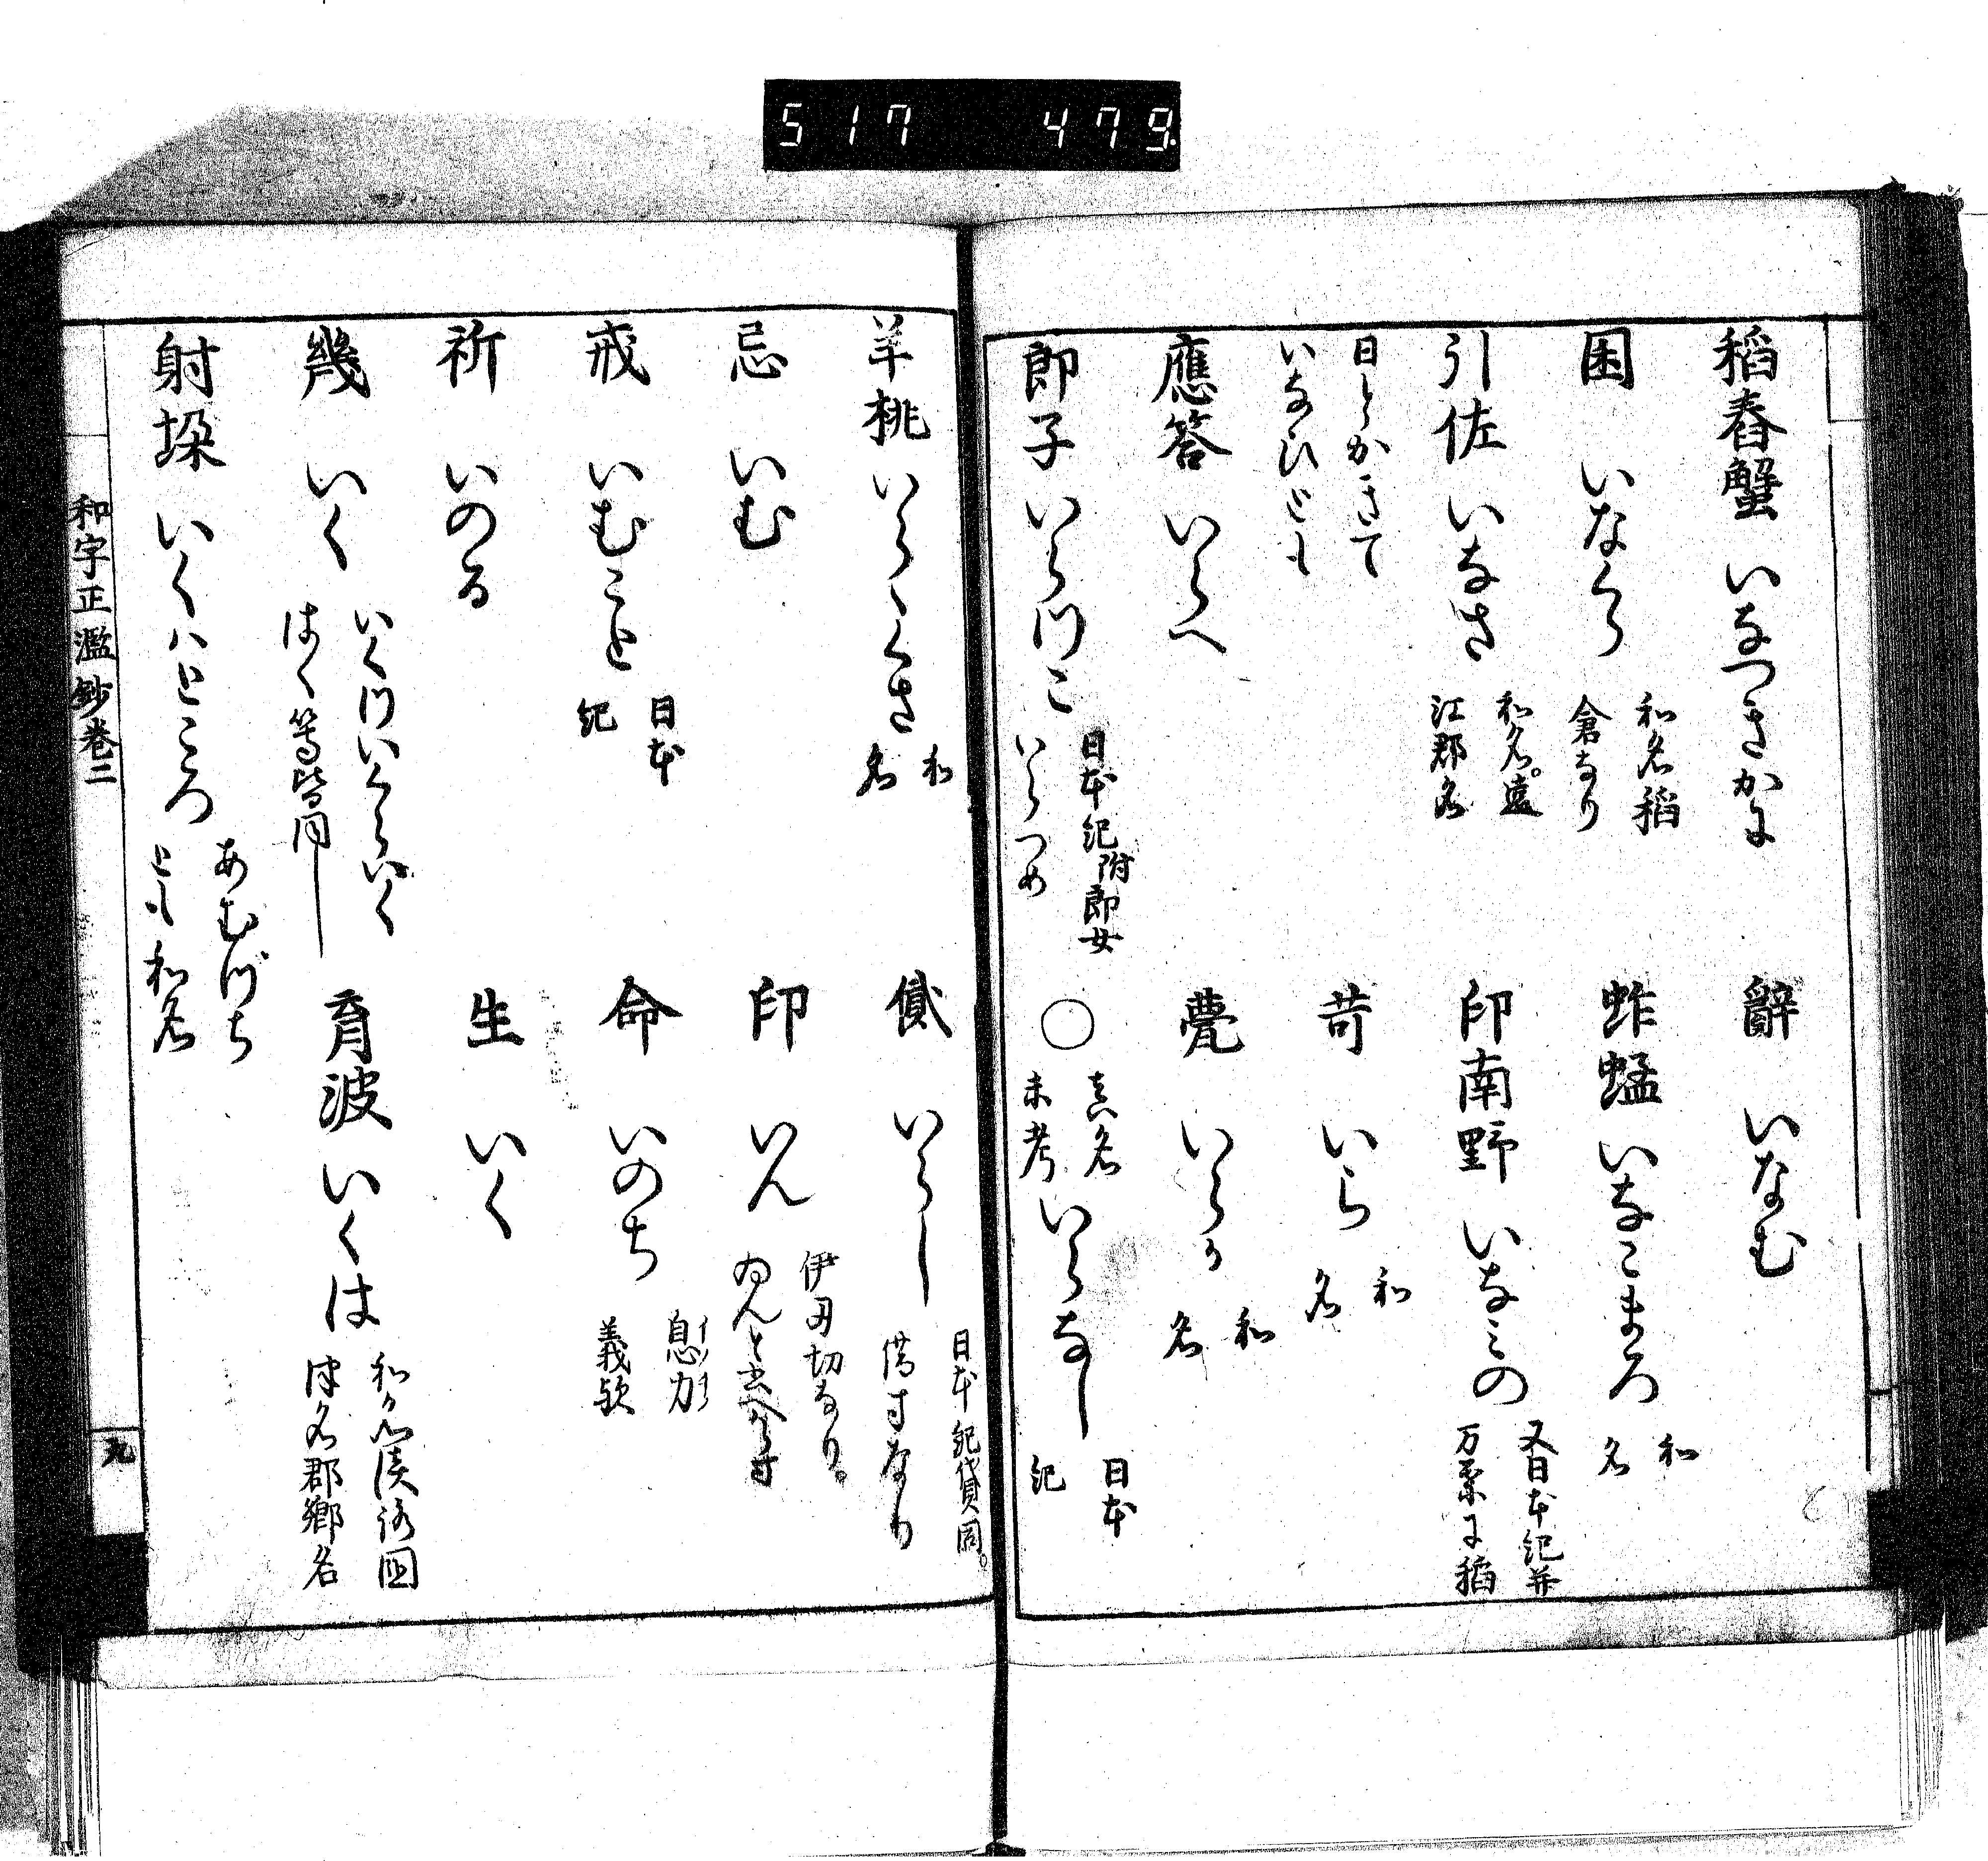 517 479
稻舂蟹 いなつきかに
辭 いなむ
囷 いなくら 和名稻
倉なり
蚱蜢 いなこまろ 和
名
引佐 いなさ 和名。遠
江郡名
印南野 いなみの 又日本紀并
万葉に稻
日とかきて
いなひとも
苛 いら 和
名
應答 いらへ
甍 いらか 和
名
郎子 いらつこ 日本紀附郎女
いらつめ
○ 真名
未考 いらなし 日本
紀
羊桃 いらゝくさ 和
名
貸 いらし 日本紀貸同。
借すなり
忌 いむ
印 いん 伊刃切なり。
戒 いむこと 日本
紀
命 いのち 息力
義歟
祈 いのる
生 いく
幾 いく いくついくらいく
はく等皆同し
育波 いくは 和名淡路國
津名郡郷名
射垜 いくハところ あむつち
とも和名
和字正濫鈔卷二
九